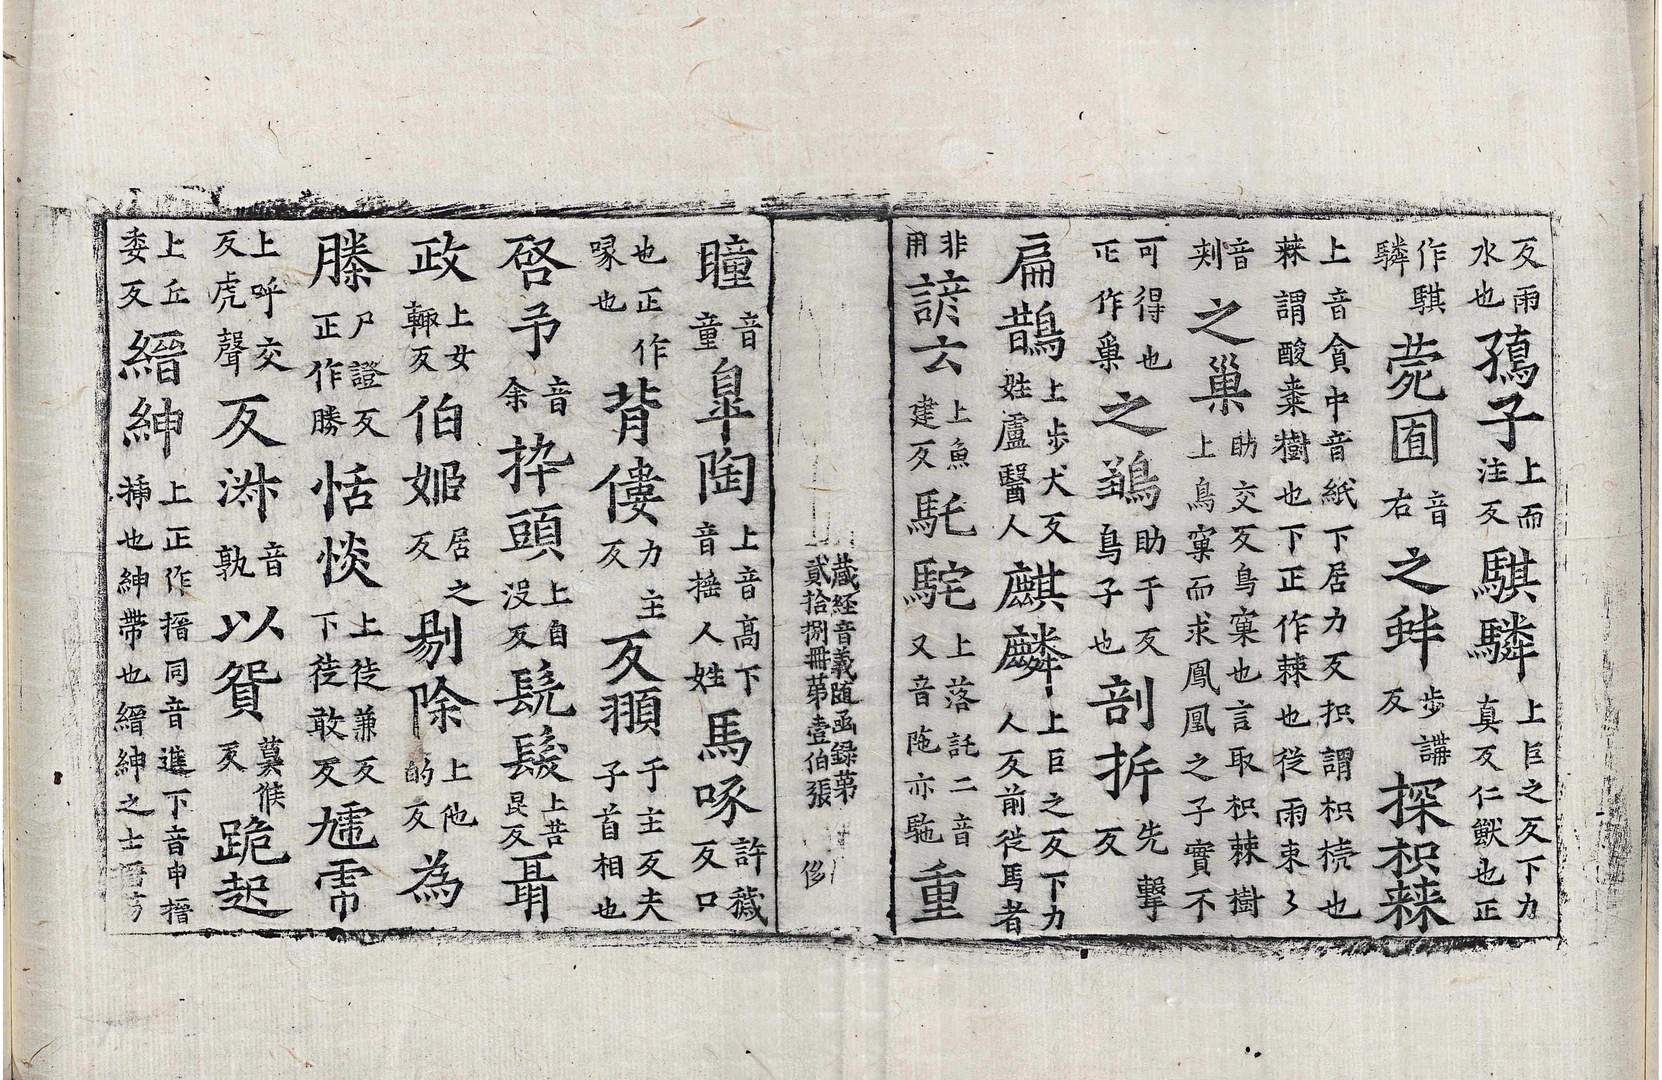 反雨水也孺子上而注反騏驎上巨之反下力真反仁獸也正
作騏驎菀囿音右之蚌步講反探枳棘
上音貪中音紙下居力反抧謂枳椇也棘謂酸棗樹也下正作棘也從雨束
音刾之巢上助交反鳥窠也言取枳棘樹上鳥窠而求鳳凰之子實不
可得也正作巢之鶵助于反鳥子也剖拆先擊反
扁鵲上步犬反姓盧醫人麒麟上巨之反下力人反前從馬者
非用諺云上魚建反馲駞上落託二音又音陁亦駞重
藏経音義随函録第貳拾捌冊苐壹伯張
瞳音童皐陶上音高下音摇人姓馬啄許穢反口
也正作喙也背僂力主反頨于主反夫子首相也
啓予音余捽頭上自没反髡髮上苦昆反聶
政上女輒反伯姬居之反剔除上他的反為
滕尸證反正作勝恬惔上徒兼反下徒敢反爈霈
上呼交反虎聲反淋音孰以貿莫候反跪起
上丘委反縉紳上正作搢同音進下音申搢揷也紳帶也縉紳之士